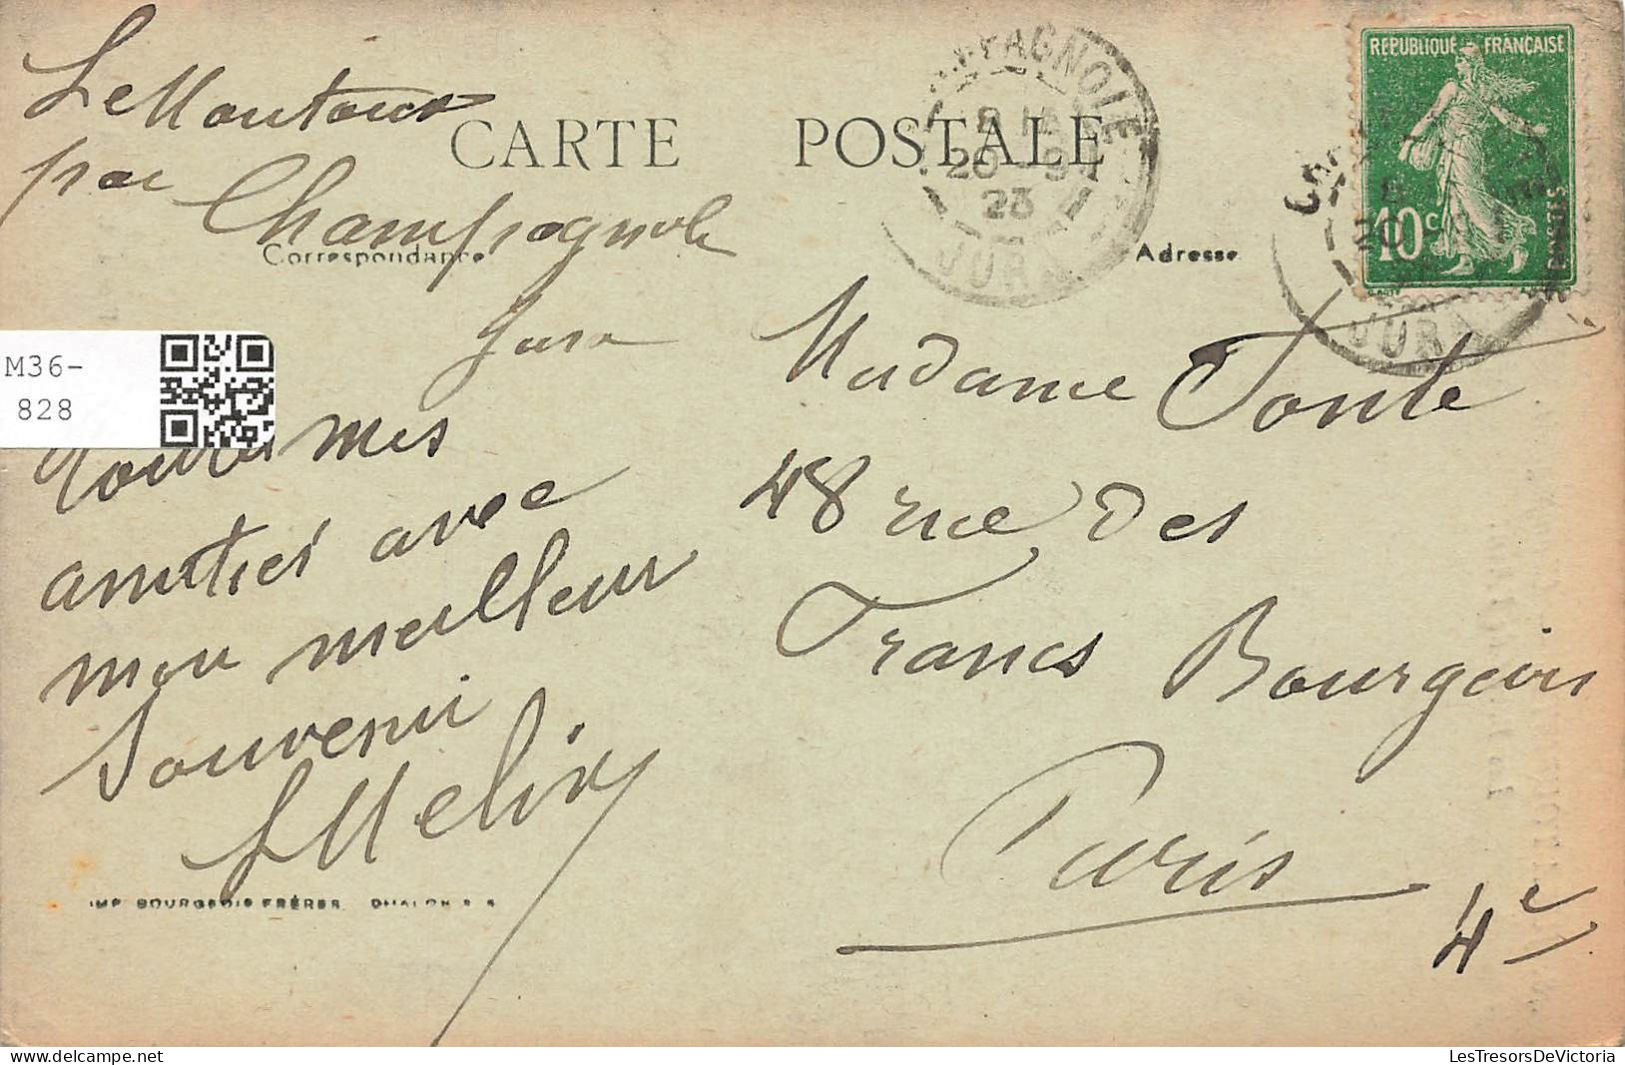 CARTE POSTALE
Le Moutoux
par Champagnole
Correspondance
Jura
M36-
828
Toutes mes
amitiés avec
mon meilleur
souvenir
IMP. BOURGEOIS FRÈRES. CHALON S S
CHAMPAGNOLE
20 - 9
23
JURA
REPUBLIQUE FRANÇAISE
10c
POSTES
JURA
Adresse
Madame
48 rue des
Francs Bourgeois
Paris
4e
LesTresorsDeVictoria